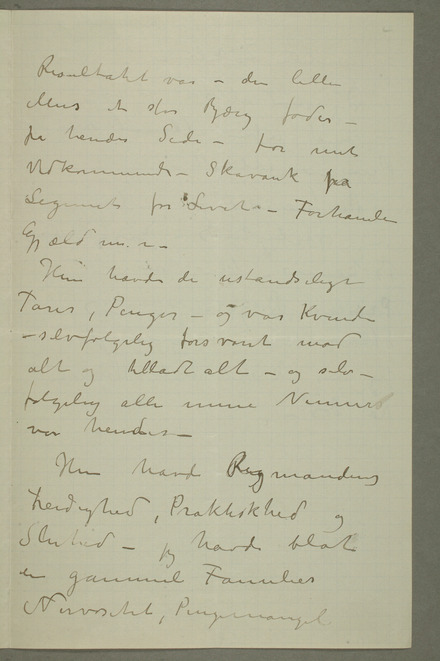 Resultatet var – den lille
Mus et stor Bjerg føder –
på hendes Side – for mit
Vedkommende – Skavank på
Legemet for Livet – Forhandlen
Gjæld m. m.
Hun havde de ustandseligt
Tarer, Penger – og var Kvinde
– selvfølgelig forsvaret mod
alt og tilladt alt – og selv –
følgelig alle mine Venner
var hendes –
Hun havde Rigmandens
Færdighed, Praktiskhed og
Sluhed – jeg havde blot
en gammel Families
Nervøsitet, Pengemangel